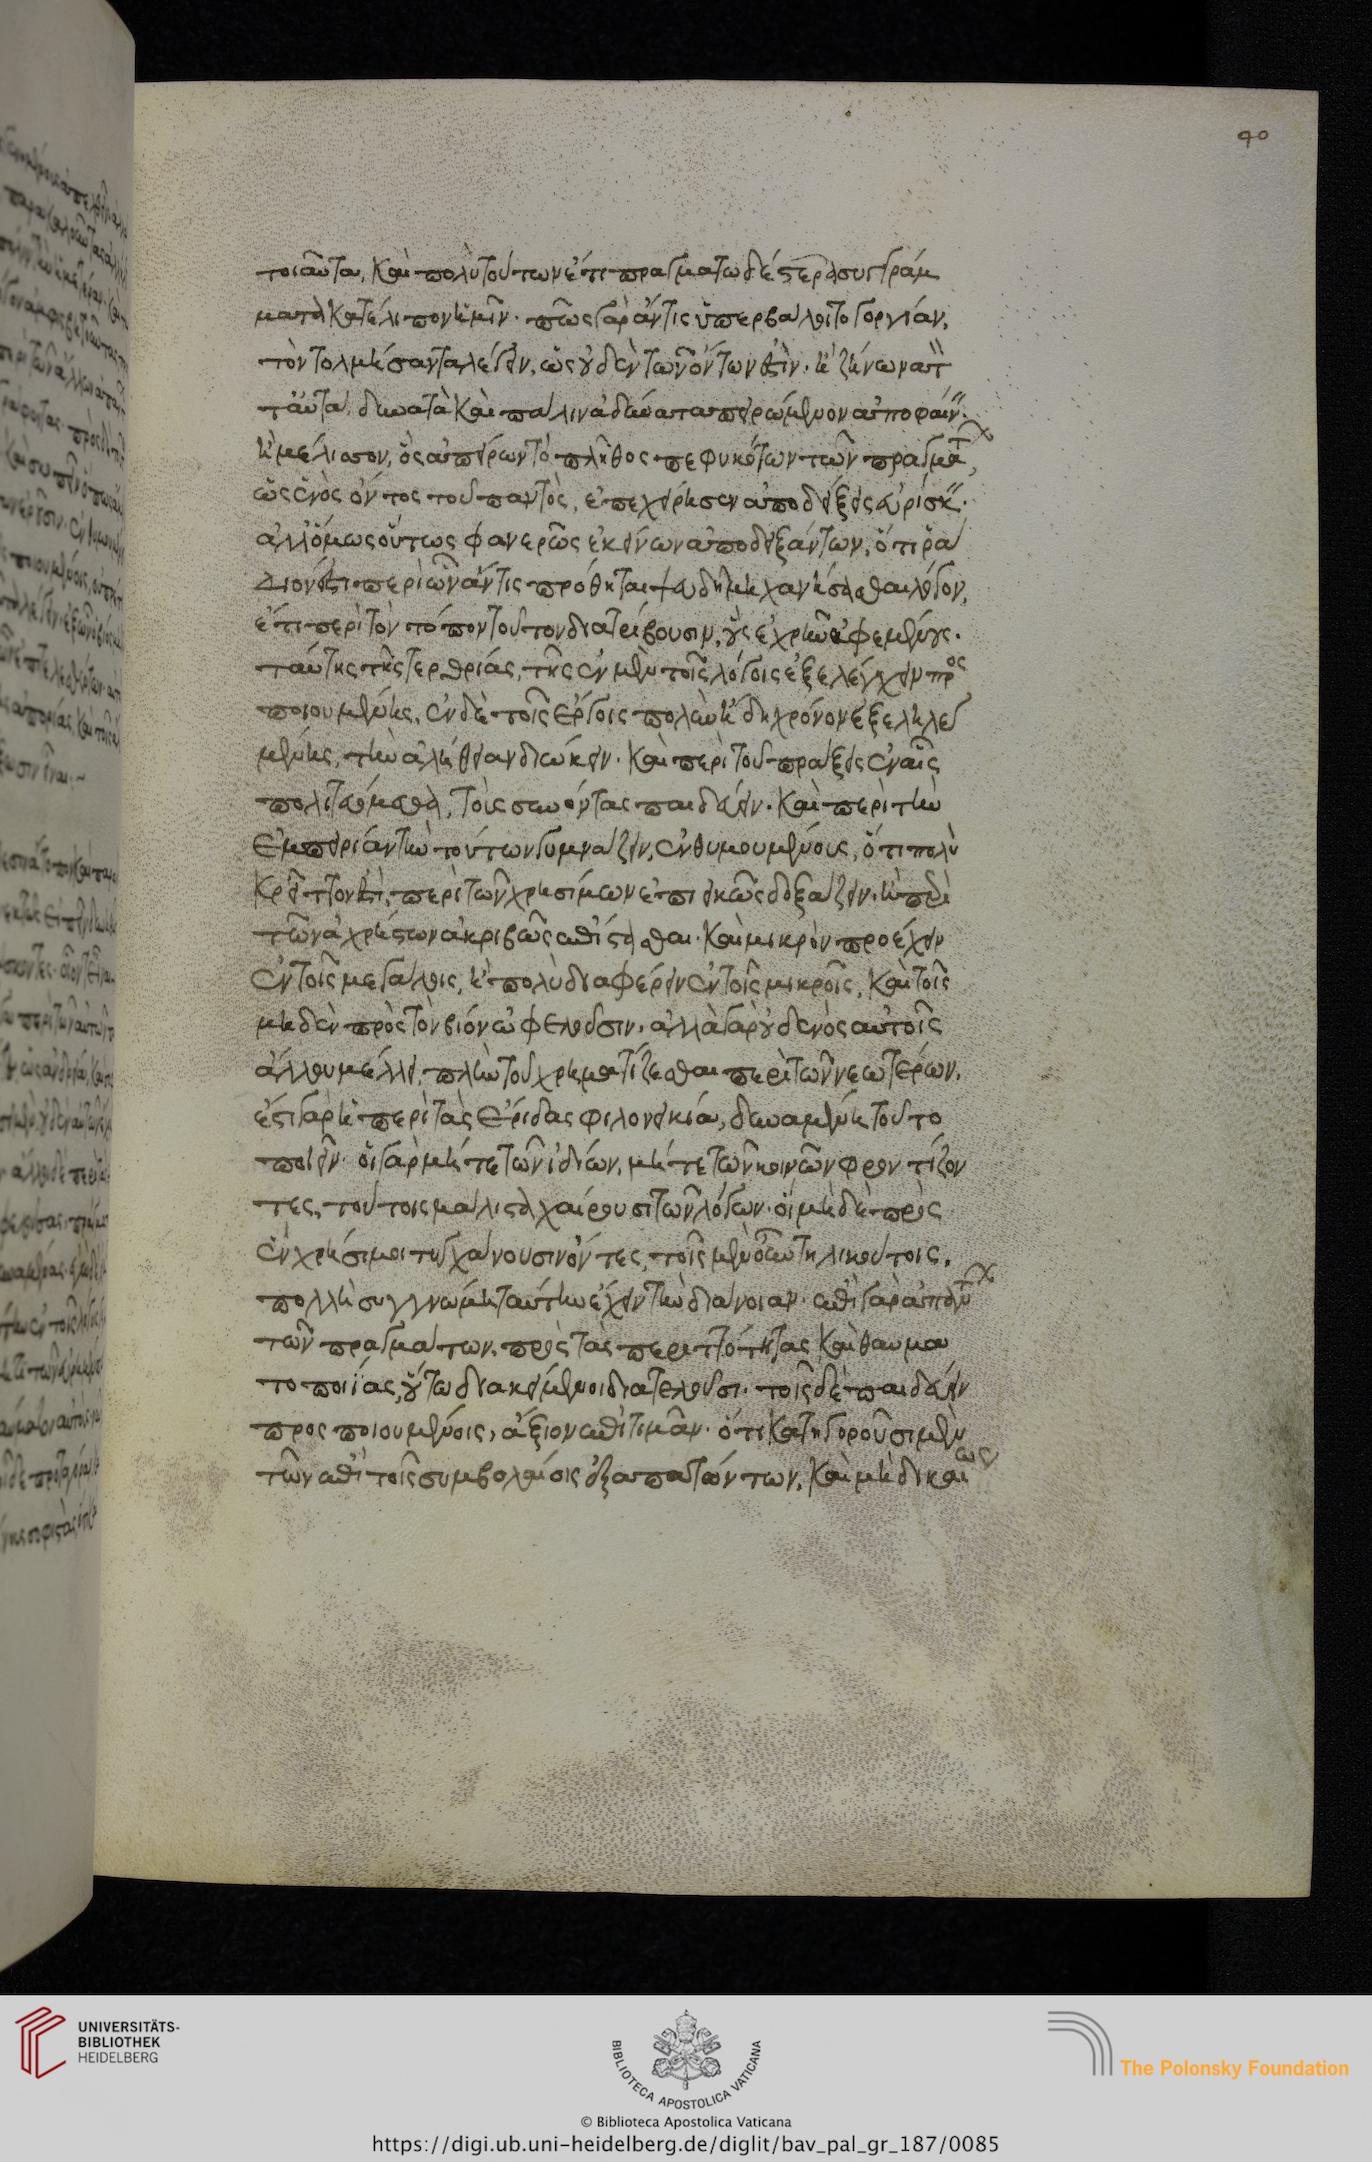 90
τοιαῦτα, καὶ πολὺ τούτων ἔτι πραγματωδέστερα συγγράμ
ματα κατέλιπον ἡμῖν· πῶς γὰρ ἄν τις ὑπερβάλοιτο γοργίαν,
τὸν τολμήσαντα λέγειν, ὡς οὐδὲν τῶν ὄντων ἐστίν· ἢ ζήνωνα τ
ταῦτα δυνατὰ καὶ πάλιν ἀδύνατα πειρώμενον ἀποφαίνειν·
ἢ μέλισσον, ὃς ἀπείρων τὸ πλῆθος πεφυκότων τῶν πραγμάτων,
ὡς ἑνὸς ὄντος τοῦ παντὸς, ἐπεχείρησεν ἀποδείξεις εὑρίσκειν·
ἀλλ' ὅμως οὕτως φανερῶς ἐκείνων ἀποδειξάντων, ὅτι ῥά
διόν ἐστι περὶ ὧν ἄν τις πρόθηται ψευδῆ μηχανήσασθαι λόγον,
ἔτι περὶ τὸν τόπον τοῦτον διατρίβουσιν, οὓς ἐχρῆν ἀφεμένους·
ταύτης τῆς τερθρίας, τῆς ἐν μὲν τοῖς λόγοις ἐξελέγχειν προσ
ποιουμένης, ἐν δὲ τοῖς ἔργοις πολὺν ἤδη χρόνον ἐξεληλεγ
μένης, τὴν ἀλήθειαν διώκειν· καὶ περὶ τοῦ πράξεις ἐν αἷς
πολιτευόμεθα, τοὺς συνόντας παιδεύειν· καὶ περὶ τὴν
ἐμπειρίαν τὴν τούτων γυμνάζειν, ἐνθυμουμένους, ὅτι πολὺ
κρεῖττόν ἐστι, περὶ τῶν χρησίμων ἐπιεικῶς δοξάζειν· ἢ περὶ
τῶν ἀχρήστων ἀκριβῶς ἐπίστασθαι· καὶ μικρὸν προέχειν
ἐν τοῖς μεγάλοις, ἢ πολὺ διαφέρειν ἐν τοῖς μικροῖς, καὶ τοῖς
μηδὲν πρὸς τὸν βίον ὠφελοῦσιν. ἀλλὰ γὰρ οὐδενὸς αὐτοῖς
ἄλλου μέλλει, πλὴν τοῦ χρηματίζεσθαι περὶ τῶν νεωτέρων.
ἔστι γὰρ ἡ περὶ τὰς ἔριδας φιλονεικία, δυναμένη τοῦτο
ποιεῖν· οἱ γὰρ μήτε τῶν ἰδίων, μήτε τῶν κοινῶν φροντίζον
τες, τούτοις μάλιστα χαίρουσι τῶν λόγων· οἳ μηδὲ πρὸς
ἓν χρήσιμοι τυγχάνουσιν ὄντες, τοῖς μὲν οὖν τηλικούτοις,
πολλὴ συγγνώμη ταύτην ἔχειν τὴν διάνοιαν· ἐπὶ γὰρ ἁπάντων
τῶν πραγμάτων, πρὸς τὰς περιττότητας καὶ θαυμα
τοποιΐας, οὕτω διακείμενοι διατελοῦσι· τοῖς δὲ παιδεύειν
προσποιουμένοις, ἄξιον ἐπιτιμᾶν· ὅτι κατηγοροῦσι μὲν
τῶν ἐπὶ τοῖς συμβολαίοις ἐξαπατώντων, καὶ μὴ δικαίως
UNIVERSITÄTS-
BIBLIOTHEK
HEIDELBERG
BIBLIOTECA APOSTOLICA VATICANA
© Biblioteca Apostolica Vaticana
The Polonsky Foundation
https://digi.ub.uni-heidelberg.de/diglit/bav_pal_gr_187/0085